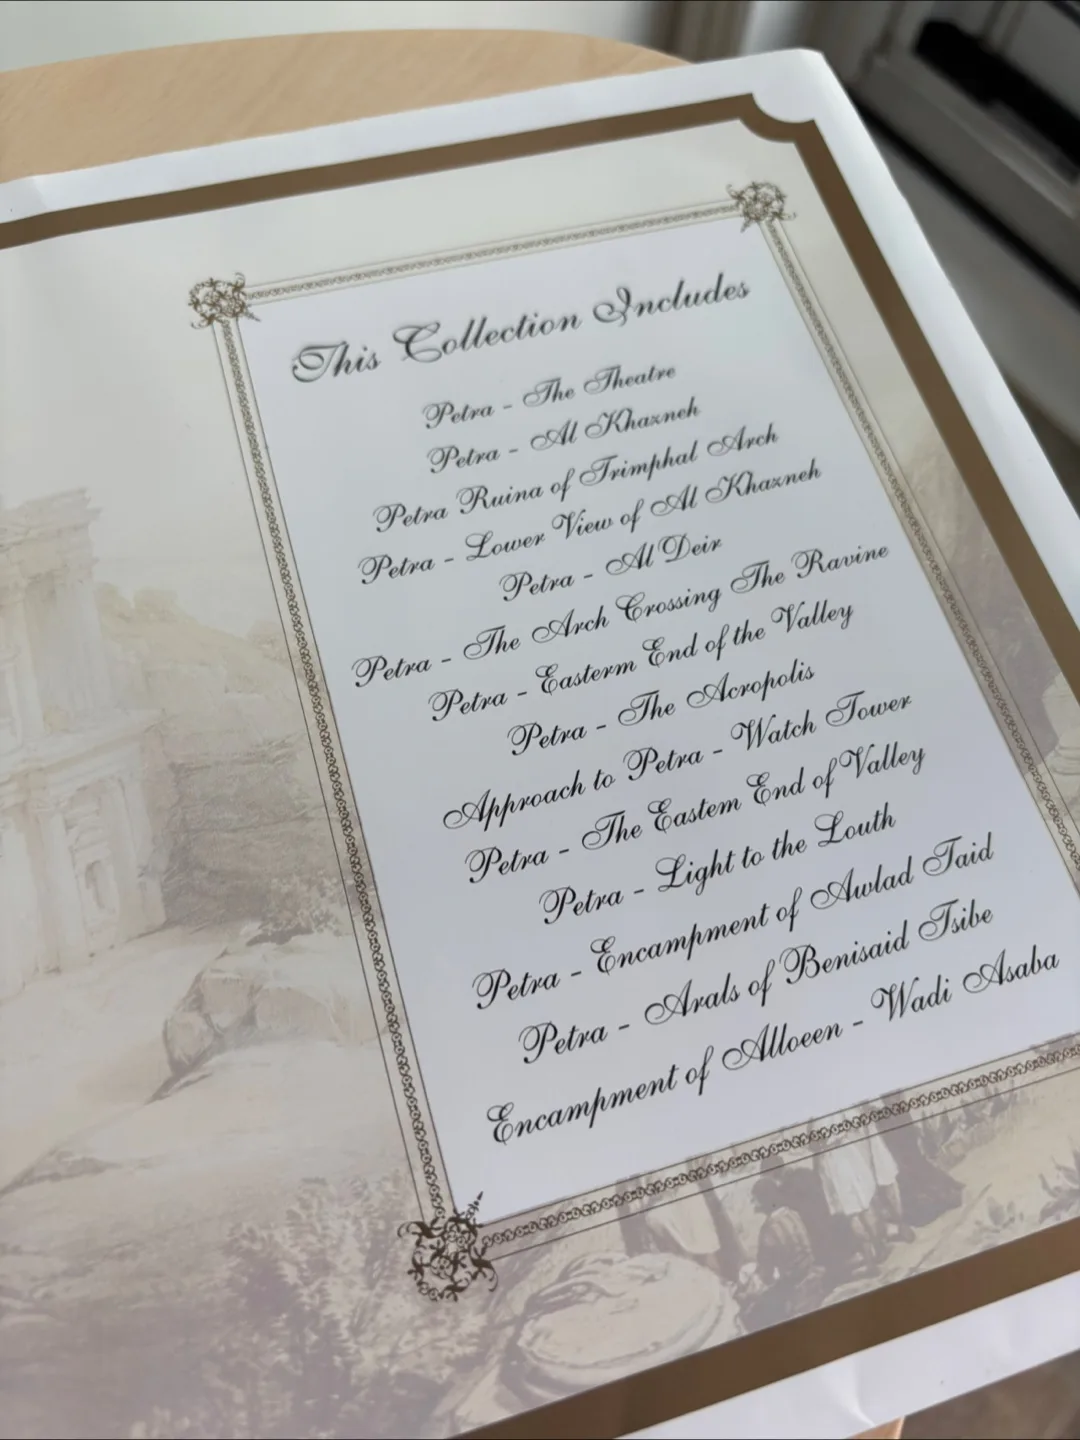 This Collection Includes
Petra - The Theatre
Petra - Al Khazneh
Petra Ruina of Trimphal Arch
Petra - Lower View of Al Khazneh
Petra - Al Deir
Petra - The Arch Crossing The Ravine
Petra - Easterm End of the Valley
Petra - The Acropolis
Approach to Petra - Watch Tower
Petra - The Eastem End of Valley
Petra - Light to the Louth
Petra - Encampment of Awlad Taid
Petra - Arals of Benisaid Tsibe
Encampment of Alloeen - Wadi Asaba